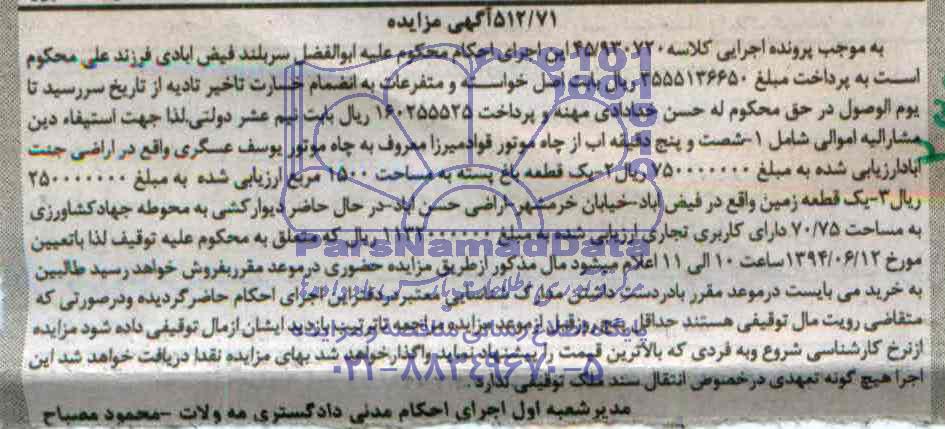 ۵۱۲/۷۱آگهی مزایده
به موجب پرونده اجرایی کلاسه ۴۵/۹۳۰۷۲۰ این اجرای احکام محکوم علیه ابوالفضل سربلند فیض ابادی فرزند علی محکوم
است به پرداخت مبلغ ۳۵۵۵۱۳۶۶۵۰ ریال بابت اصل خواسته و متفرعات به انضمام خسارت تاخیر تادیه از تاریخ سررسید تا
یوم الوصول در حق محکوم له حسن خدادادی مهنه و پرداخت ۱۶۰۲۵۵۵۲۵ ریال بابت نیم عشر دولتی.لذا جهت استیفاء دین
مشارالیه اموالی شامل ۱-شصت و پنج دقیقه اب از چاه موتور قوادمیرزا معروف به چاه موتور یوسف عسگری واقع در اراضی جنت
ابادارزیابی شده به مبلغ ۷۵۰۰۰۰۰۰۰ ریال۲-یک قطعه باغ پسته به مساحت ۱۵۰۰ مربع ارزیابی شده به مبلغ ۲۵۰۰۰۰۰۰۰
ریال۳-یک قطعه زمین واقع در فیض اباد-خیابان خرمشهر-اراضی حسن اباد-در حال حاضر دیوارکشی به محوطه جهادکشاورزی
به مساحت ۷۰/۷۵ دارای کاربری تجاری ارزیابی شده به مبلغ ریال که متعلق به محکوم علیه توقیف لذا باتعیین
مورخ ۱۳۹۴/۰۶/۱۲ساعت ۱۰ الی ۱۱ اعلام میشود مال مذکور ازطریق مزایده حضوری درموعد مقرربفروش خواهد رسید طالبین
به خرید می بایست درموعد مقرر بادردست داشتن مدارک شناسایی معتبردردفتراین اجرای احکام حاضرگردیده ودرصورتی که
متقاضی رویت مال توقیفی هستند حداقل پنج روزقبل ازموعد مزایده مراجعه تاترتیب بازدید ایشان ازمال توقیفی داده شود مزایده
ازنرخ کارشناسی شروع وبه فردی که بالاترین قیمت را پیشنهاد نماید واگذارخواهد شد بهای مزایده نقدا دریافت خواهد شد این
اجرا هیچ گونه تعهدی درخصوص انتقال سند ملک توقیفی ندارد.
مدیرشعبه اول اجرای احکام مدنی دادگستری مه ولات -محمود مصباح
ParsNamadData
۰۲۱-۸۸۳۴۹۶۷۰-۵